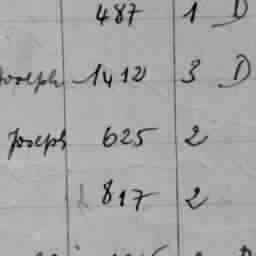 487 1 D
1412 3 D
Joseph 625 2
817 2